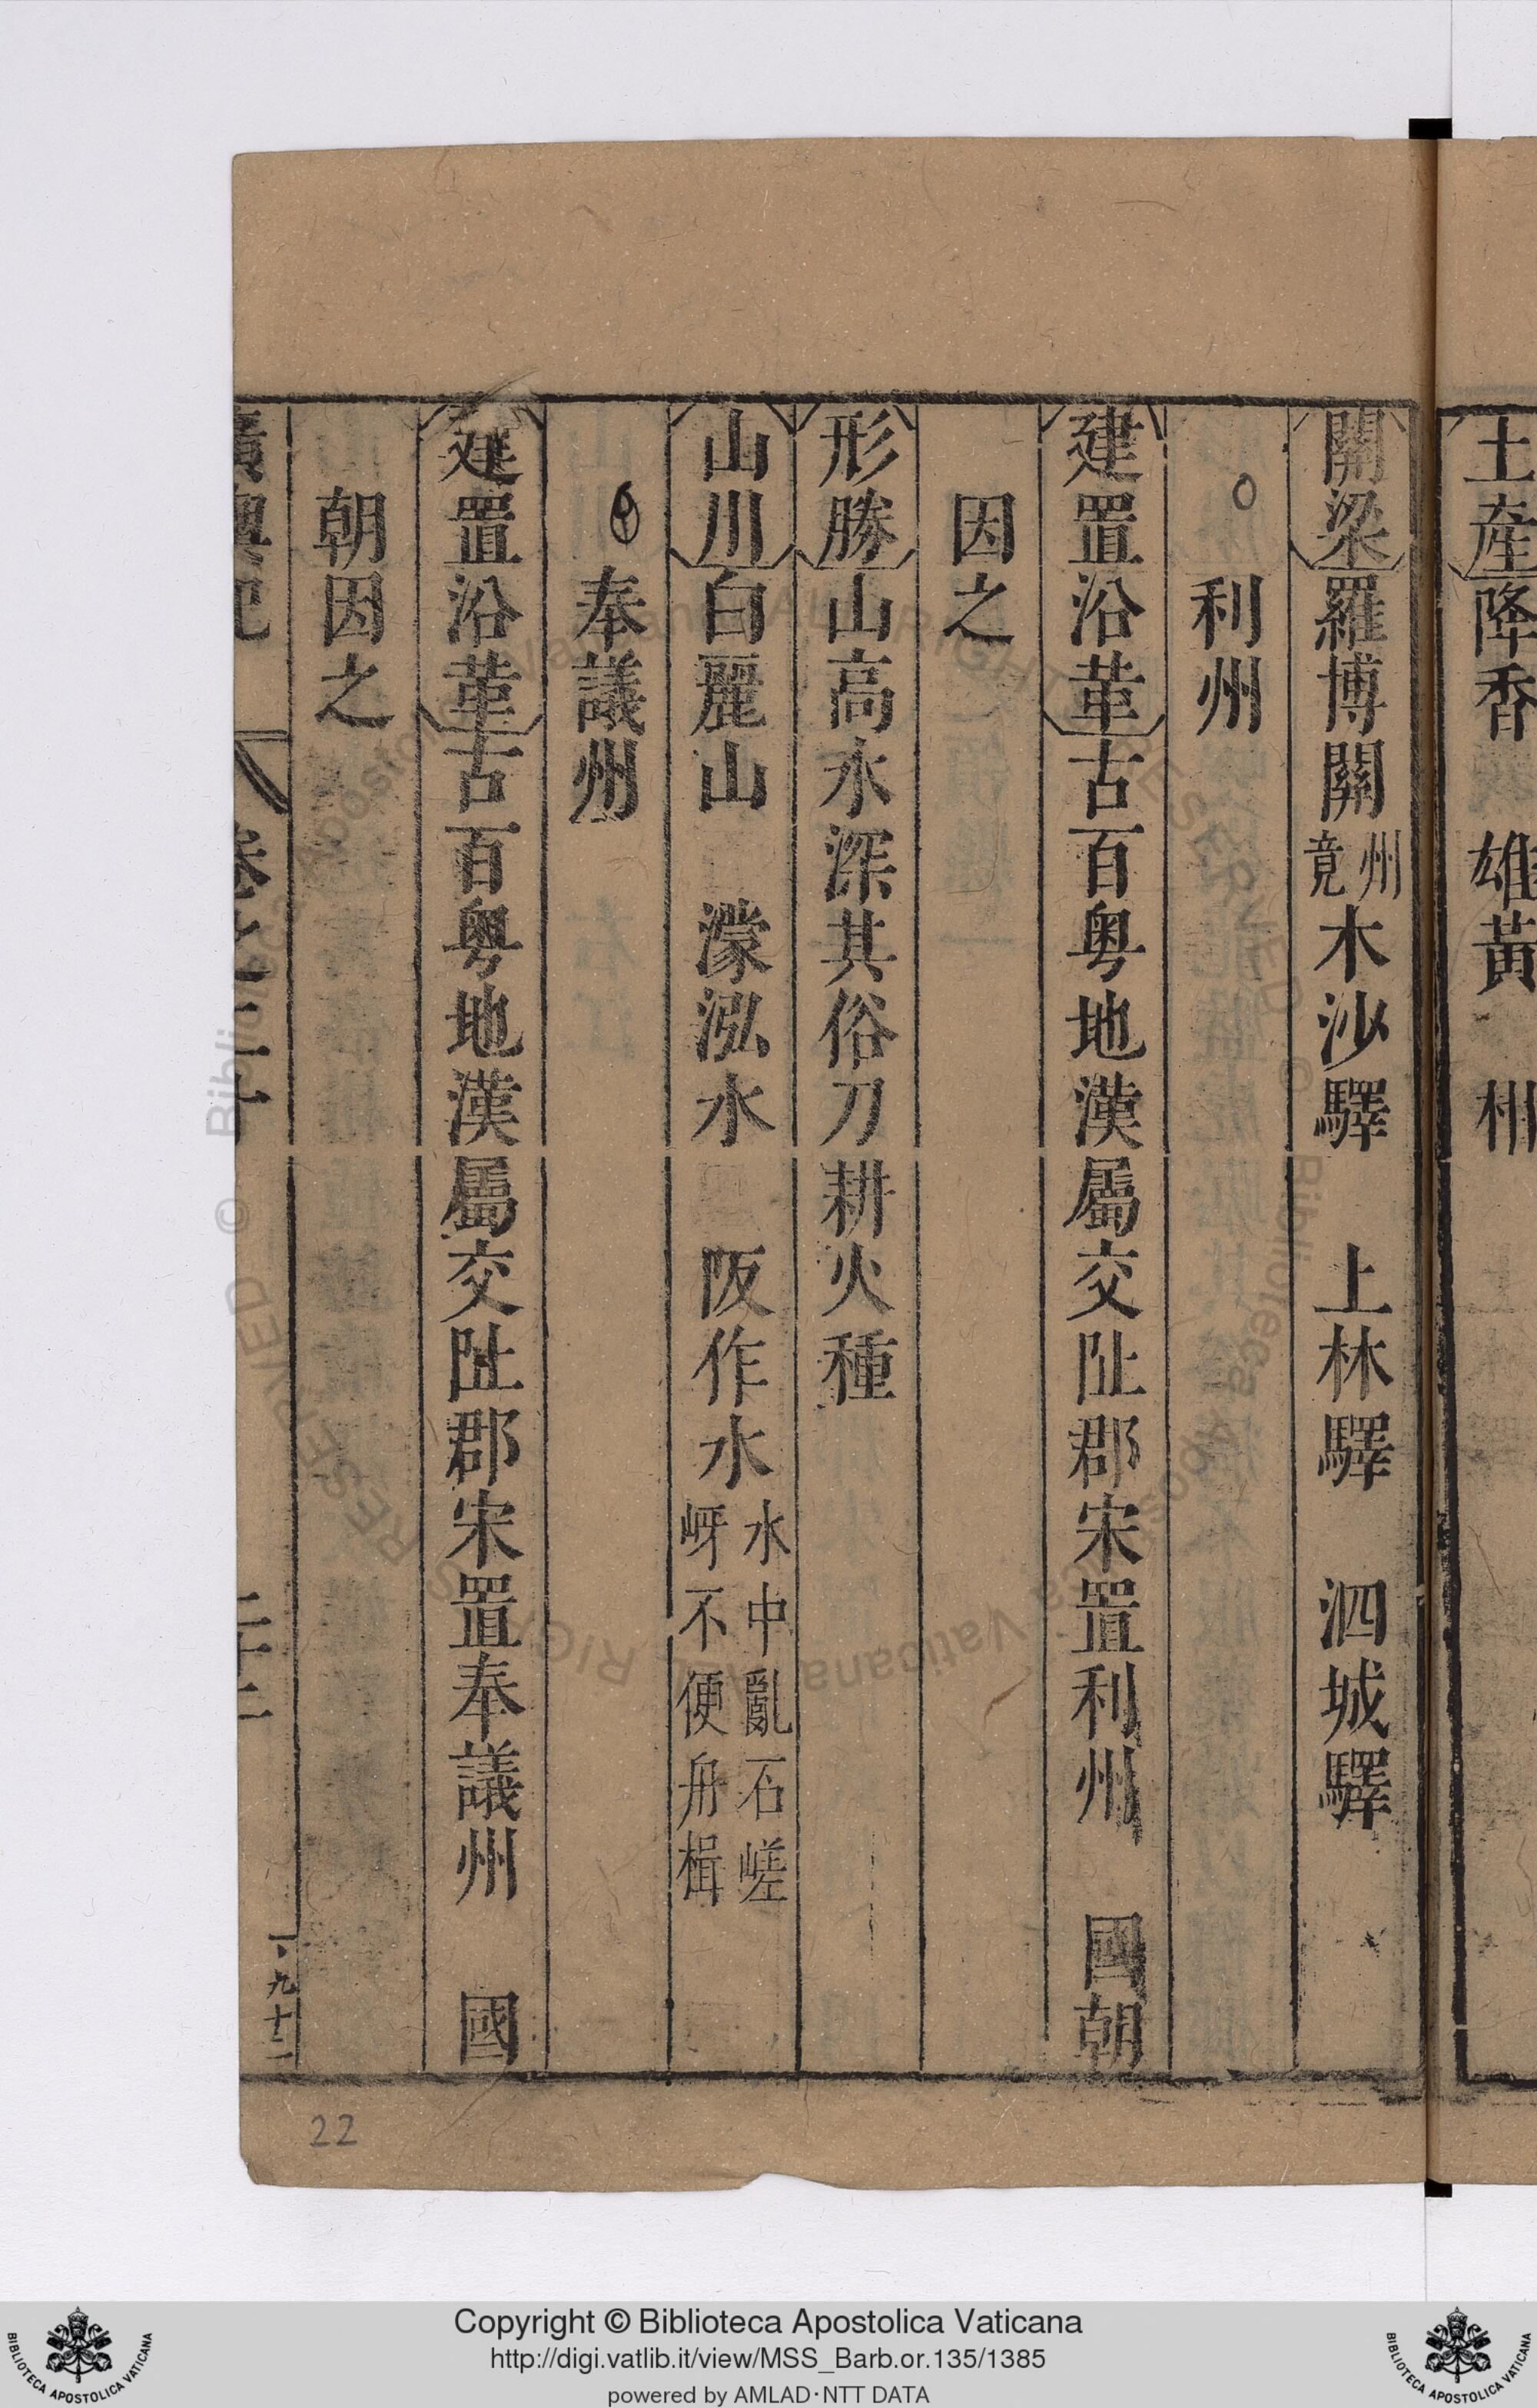 土産降香 雄黃
關梁羅博關州竟木沙驛 上林驛 泗城驛
利州
建置沿革古百粤地漢屬交阯郡宋置利州 國朝
因之
形勝山高水深其俗刀耕火種
山川白麗山 濛泓水 阪作水水中亂石嵯岈不便舟楫
奉議州
建置沿革古百粤地漢屬交阯郡宋置奉議州 國
朝因之
廣輿記 二十二
22
Copyright © Biblioteca Apostolica Vaticana
http://digi.vatlib.it/view/MSS_Barb.or.135/1385
powered by AMLAD·NTT DATA
BIBLIOTECA APOSTOLICA VATICANA
BIBLIOTECA APOSTOLICA VATICANA